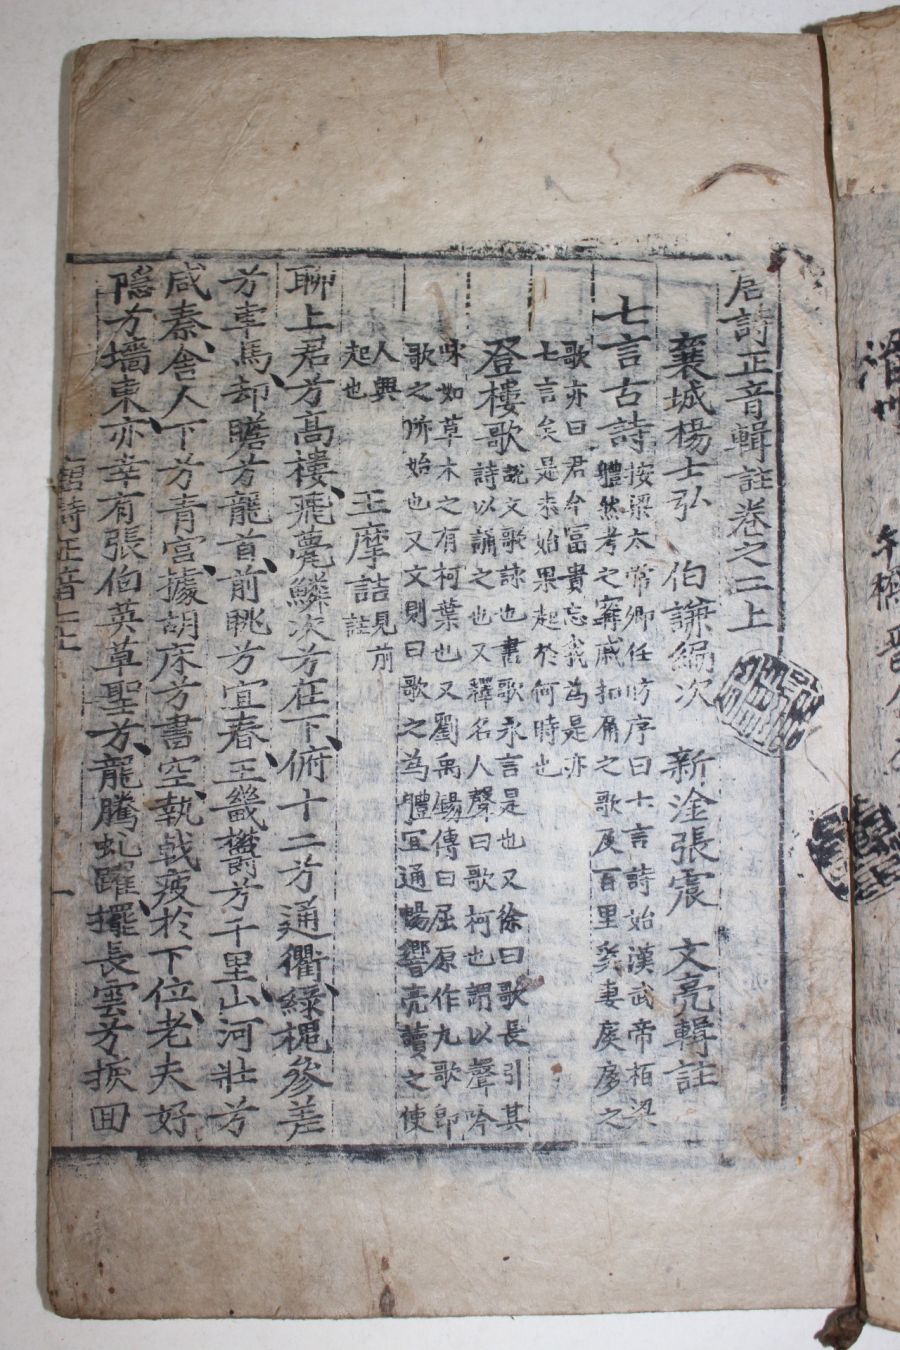 唐詩正音輯註卷之二上
襄城楊士弘 伯謙編次 新淦張震 文亮輯註
七言古詩 按梁太常卿任昉序曰七言詩始漢武帝栢梁
體然考之甯戚扣角之歌及百里奚妻扊扅之
歌亦曰君今富貴忘我為是亦
七言矣是未始果起於何時也
登樓歌 說文歌詠也書歌永言是也又徐曰歌長引其
詩以誦之也又釋名人聲曰歌柯也謂以聲吟
咏如草木之有柯葉也又劉禹錫傳曰屈原作九歌即
歌之所始也又文則曰歌之為體宜通暢響亮讀之使
人興
起也
王摩詰 見前
註
聊上君兮高樓飛甍鱗次兮在下俯十二兮通衢綠槐參差
兮車馬却瞻兮龍首前眺兮宜春王畿欝兮千里山河壯兮
咸秦舍人下兮青宮據胡床兮書空執戟疲於下位老夫好
隱兮墻東亦幸有張伯英草聖兮龍騰虬躍擺長雲兮捩回
唐詩正音二上
一